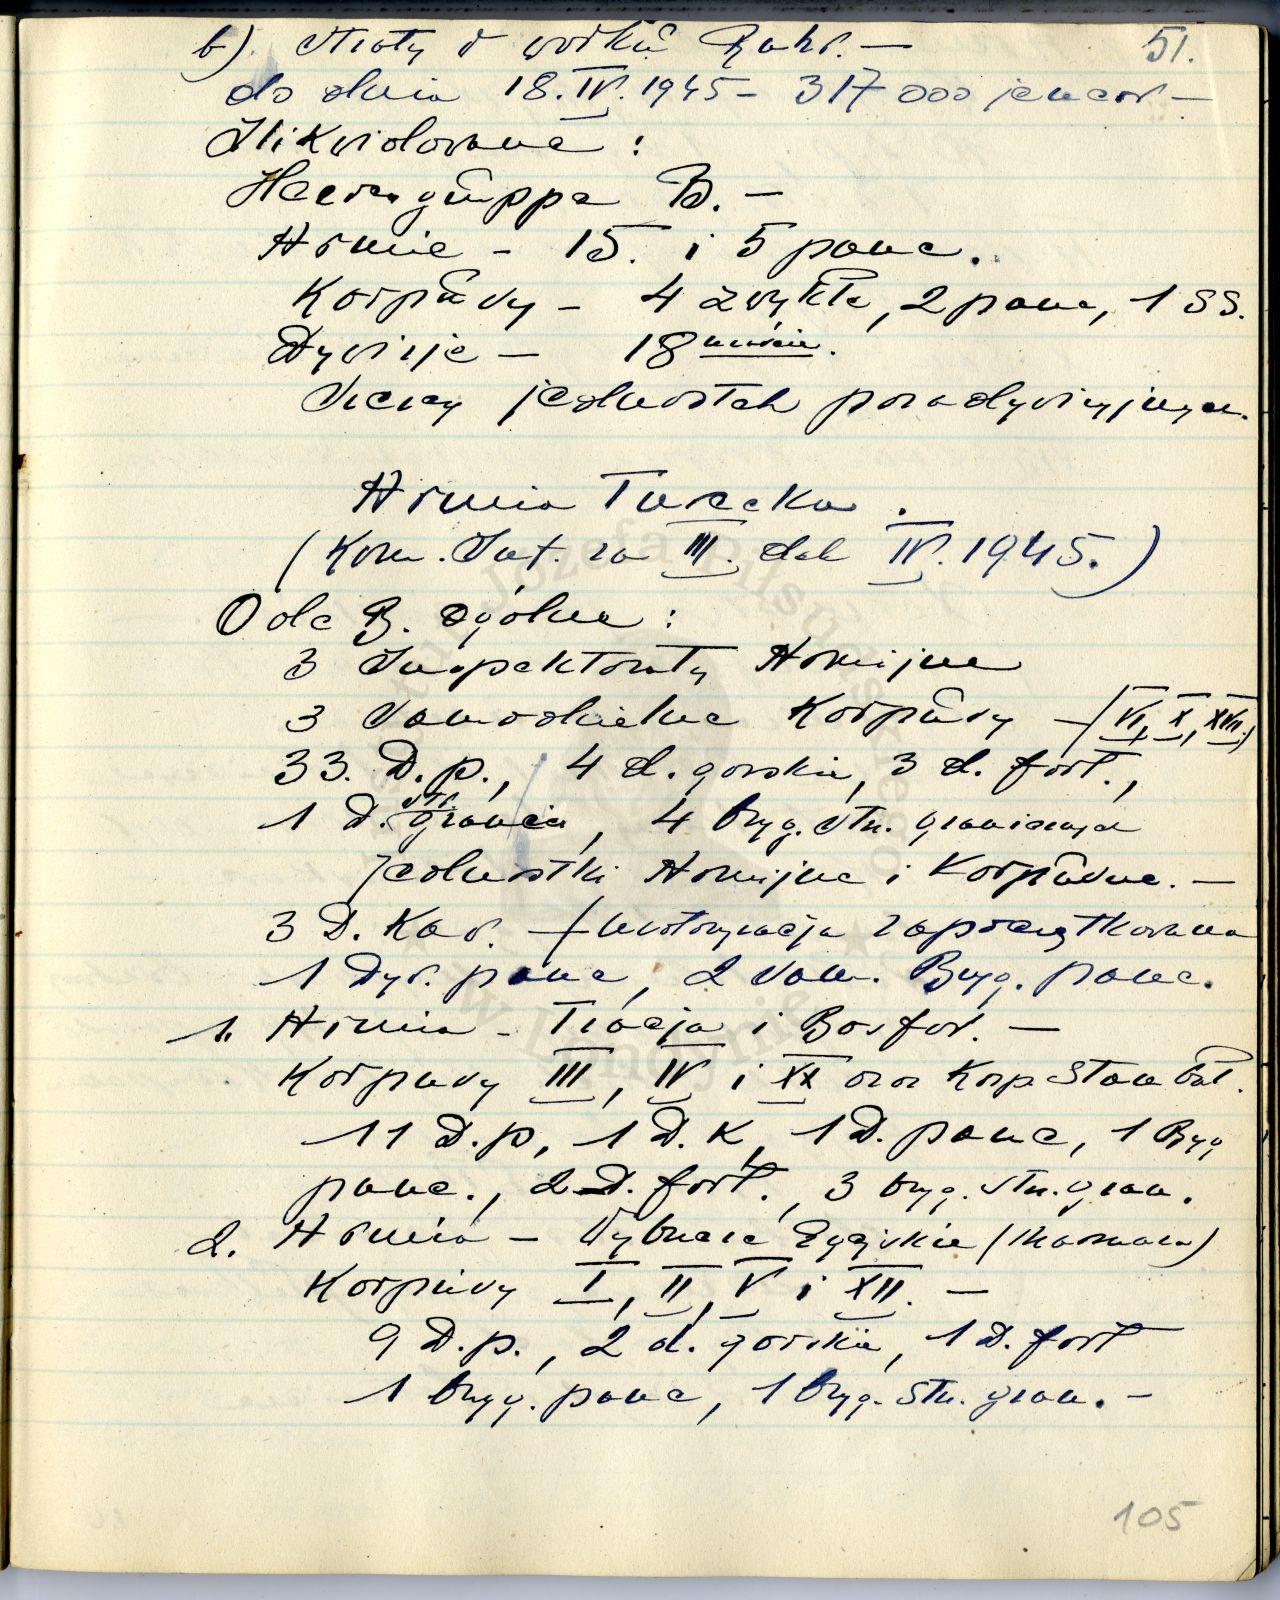 b) Straty w worku Ruhr. — 51.
do dnia 18. IV. 1945 – 317 000 jeńców —
Zlikwidowane :
Heeresgruppe B. —
Armie – 15. i 5 panc.
Korpusy – 4 zwykłe, 2 panc, 1 SS.
Dywizje — 18
Szereg jednostek pozadywizyjnych.
Armia Turecka.
(Kom. Inf. za III. dek IV. 1945.)
Ode B. ogólne :
3 Inspektoraty Armijne
3 Samodzielne Korpusy — (VI, X, XVII.)
33. D.p., 4 d. górskie, 3 d. fort.,
1 D. str. granicz, 4 bryg. str. granicznych
Jednostki Armijne i Korpuśne. —
3 D. Kaw. — (motoryzacja zapoczątkowana
1 Dyw. panc, 2 sam. Bryg. panc.
1. Armia – Tracja i Bosfor. —
Korpusy III, IV i XX oraz Korp Stambuł.
11 D.p, 1 D.K, 1 D. panc, 1 Bryg
panc., 2 D. fort., 3 bryg. str. gran.
2. Armia – Wybrzeże Egejskie (Marmara)
Korpusy I, II, V i XII. —
9 D.p., 2 d. górskie, 1 D. fort
1 bryg. panc, 1 bryg. str. gran. —
105